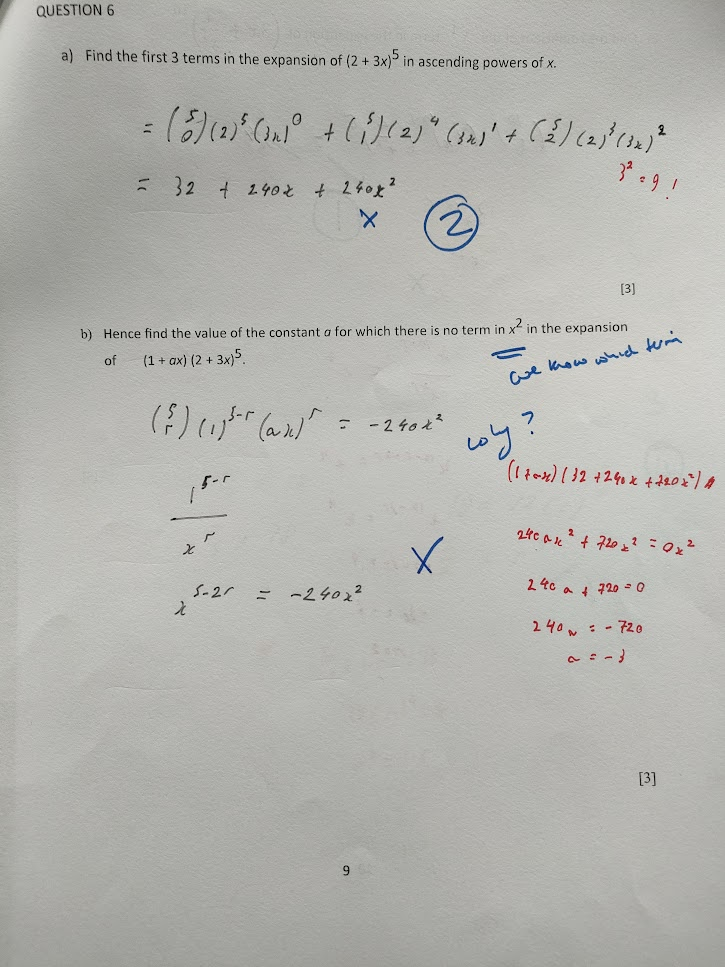 QUESTION 6
a) Find the first 3 terms in the expansion of (2 + 3x)^5 in ascending powers of x.
= (5 0)(2)^5 (3x)^0 + (5 1)(2)^4 (3x)^1 + (5 2)(2)^3 (3x)^2
3^2 = 9 !
= 32 + 240x + 240x^2
x 2
[3]
b) Hence find the value of the constant a for which there is no term in x^2 in the expansion
of (1 + ax) (2 + 3x)^5.
we know which term
(5 r)(1)^5-r (ax)^r = -240x^2 why?
(1+ax)(32 + 240x + 720x^2)
1^5-r
x^r
240ax^2 + 720x^2 = 0x^2
x
x^5-2r = -240x^2
240a + 720 = 0
240a = -720
a = -3
[3]
9